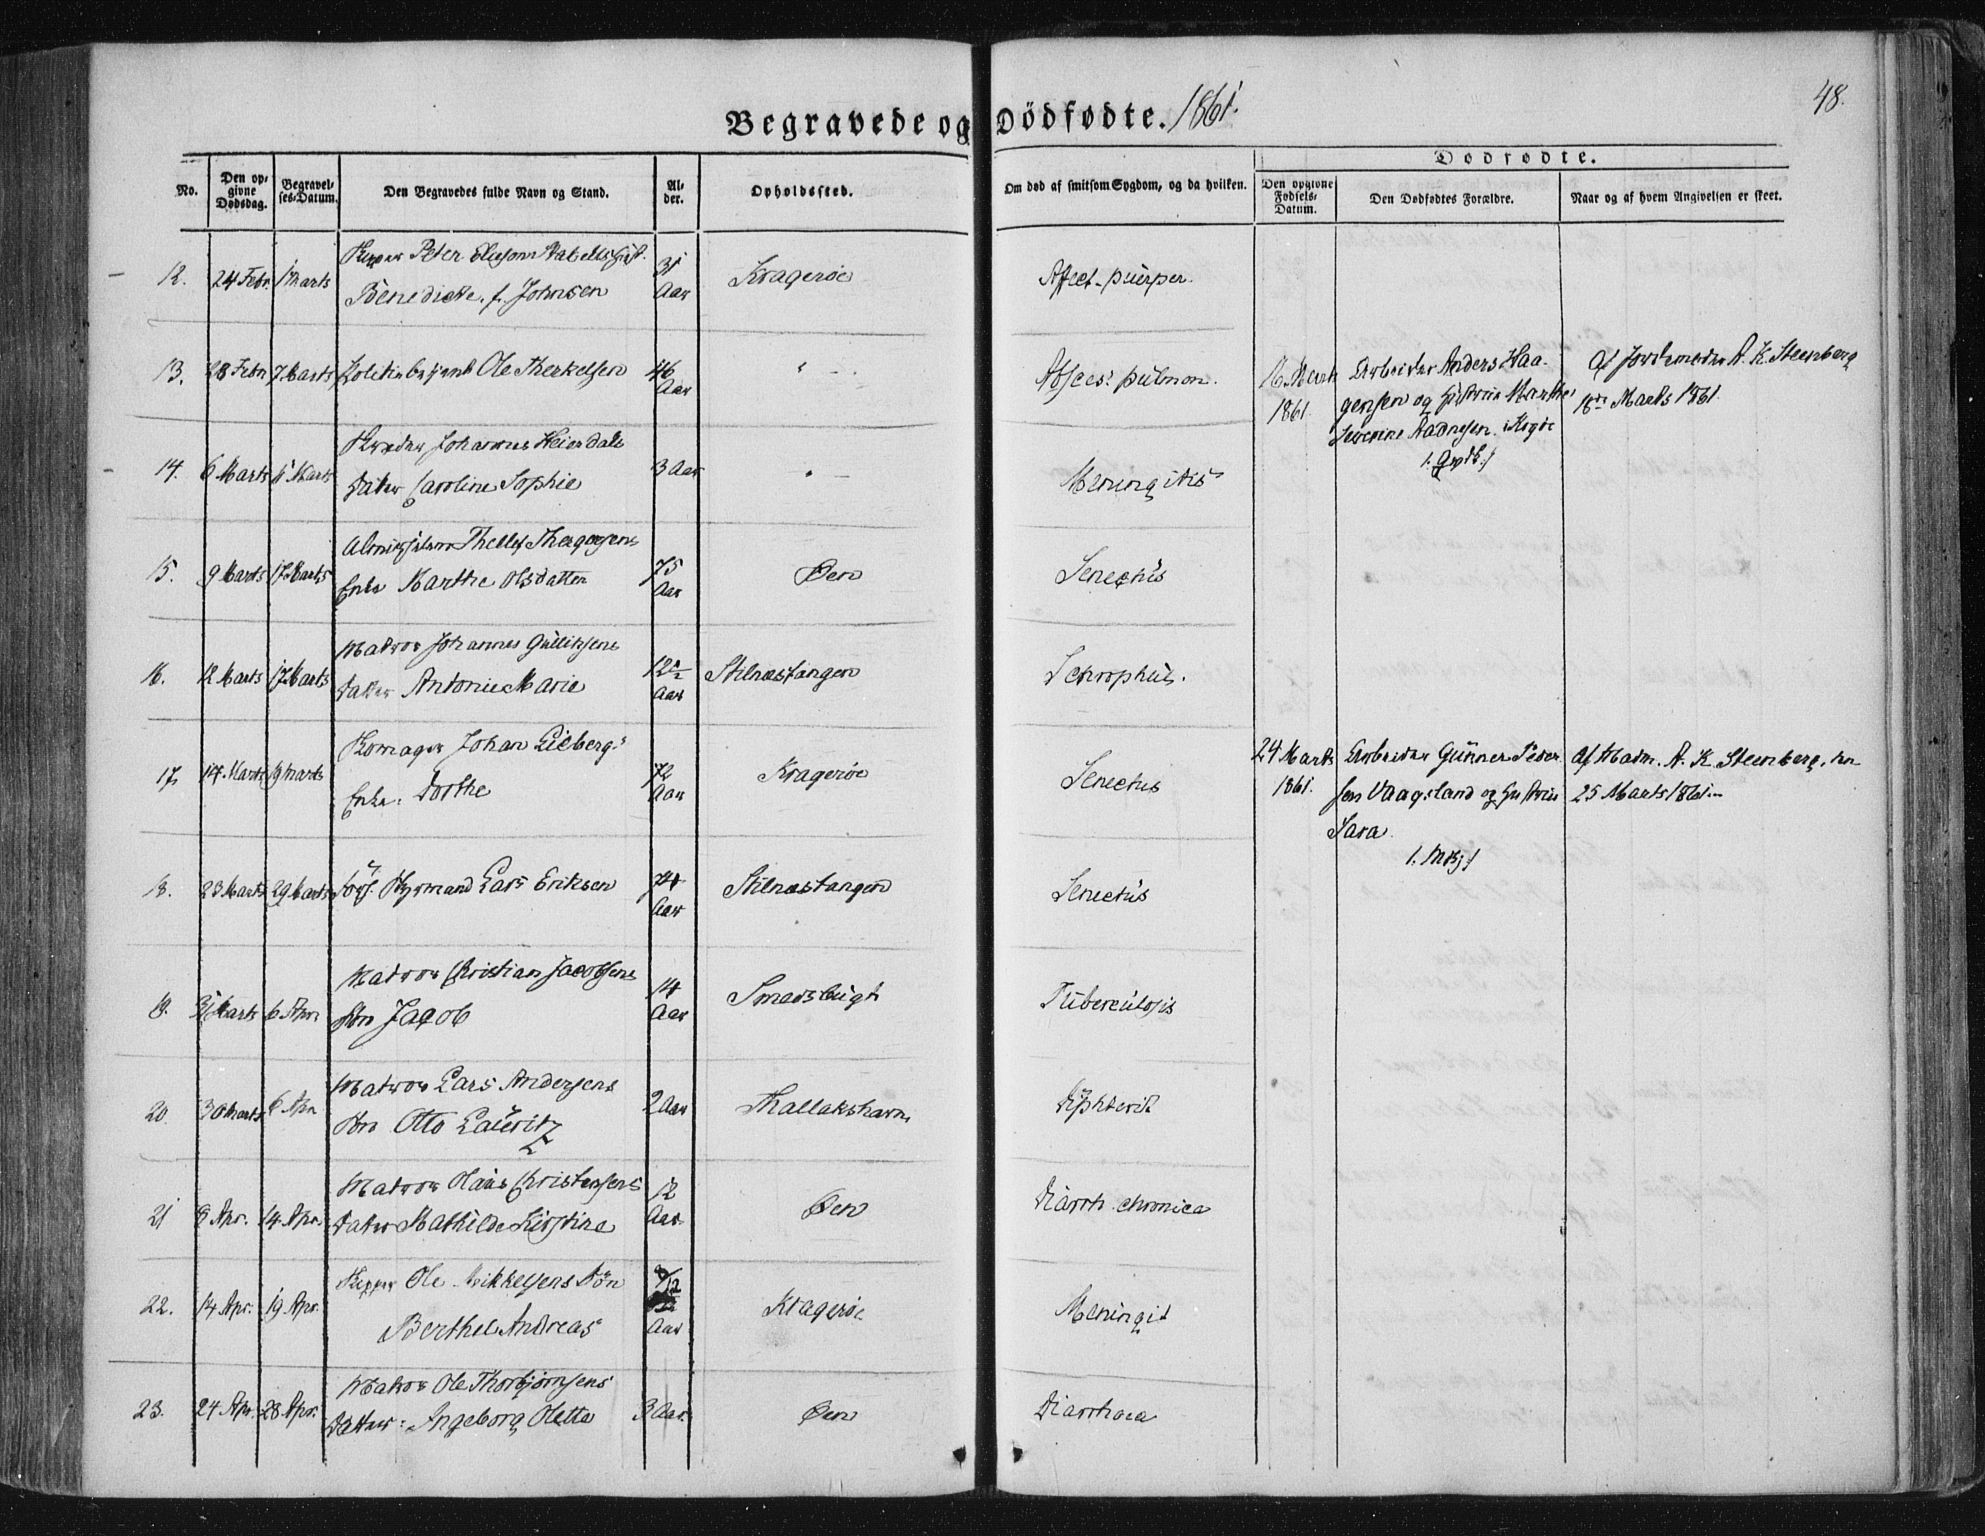 48.
Begravede og Dödfødte. 1861.
No.
Den opgivne Dødsdag.
Begravelses-Datum.
Den Begravedes fulde Navn og Stand.
Alder.
Opholdssted.
Om død af smitsom Sygdom, og da hvilken.
Dødfødte.
Den opgivne Fødsels-Datum.
Den Dødfødtes Forældre.
Naar og af hvem Angivelsen er skeet.
12. 24 Febr. 1 Marts Peter Eliesen
Benedicte f. Johnsen 31 Aar Kragerøe Affect. puerper.
13. 28 Febr 7 Marts Politiebetjent Ole Therkelsen 46 Aar " — Absces: pulmon.
16 Marts 1861. Arbeider Anders Haa-
gensen og Hustrue Marthe
Severine Aadnesen. Kragøe
Af Jordemoder A. K. Steenberg
16de Marts 1861.
14. 6 Marts 11 Marts Johannes Heierdals
Datter Caroline Sophie 3 Aar " — Meningitis
15. 9 Marts 17 Marts Thellef
Enke Marthe Olsdatter 75 Aar Øen Senectus
16. 12 Marts 17 Marts Matros Johannes Gulliksens
Datter Antonie Marie 12 Aar Stilnæstangen Schrophuls.
17. 14 Marts 19 Marts Johan Lieberg's
Enke. Dorthe 72 Aar Kragerøe Senectus
24 Marts 1861. Arbeider Gunner Peder
sen Vaagsland og Hustrue
Sara.
Af Madm. A. K. Steenberg, den
25 Marts 1861.—
18. 23 Marts 29 Marts Styrmand Lars Eriksen 74 Aar Stilnæstangen Senectus
19. 31 Marts 6 Apr. Matros Christian Jacobsens
Søn Jacob 14 Aar Smedsbugt Tuberculosis
20. 30 Marts 6 Apr. Matros Lars Andersens
Søn Otto Lauritz 2 Aar Thallakshavn Diphterit
21 8 Apr. 14 Apr. Matros Olaus Christensens
Datter Mathilde Kirstine 12 Aar Øen Diarrh. chronica
22. 14 Apr. 19 Apr. Ole Mikkelsens Søn
Berthel Andreas 8/12 Aar Kragerøe Meningit
23. 24 Apr. 28 Apr. Matros Ole Thorbjørnsens
Datter: Ingeborg Oletta 3 Aar. Øen Diarrhoea